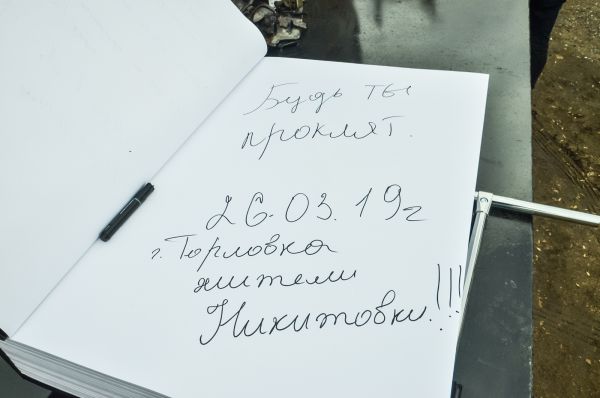 Будь ты
проклят.
26.03.19г
г. Горловка
жители
Никитовки!!!